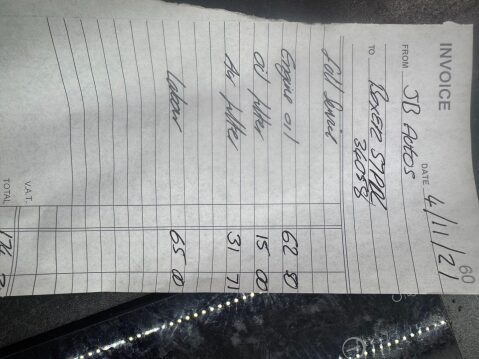 INVOICE 60
DATE 4/11/21
FROM JB Autos
TO BOXER
36058
Full Service
Engine oil 62 50
oil filter 15 00
Air filter 31 71
Labour 65 00
V.A.T.
TOTAL